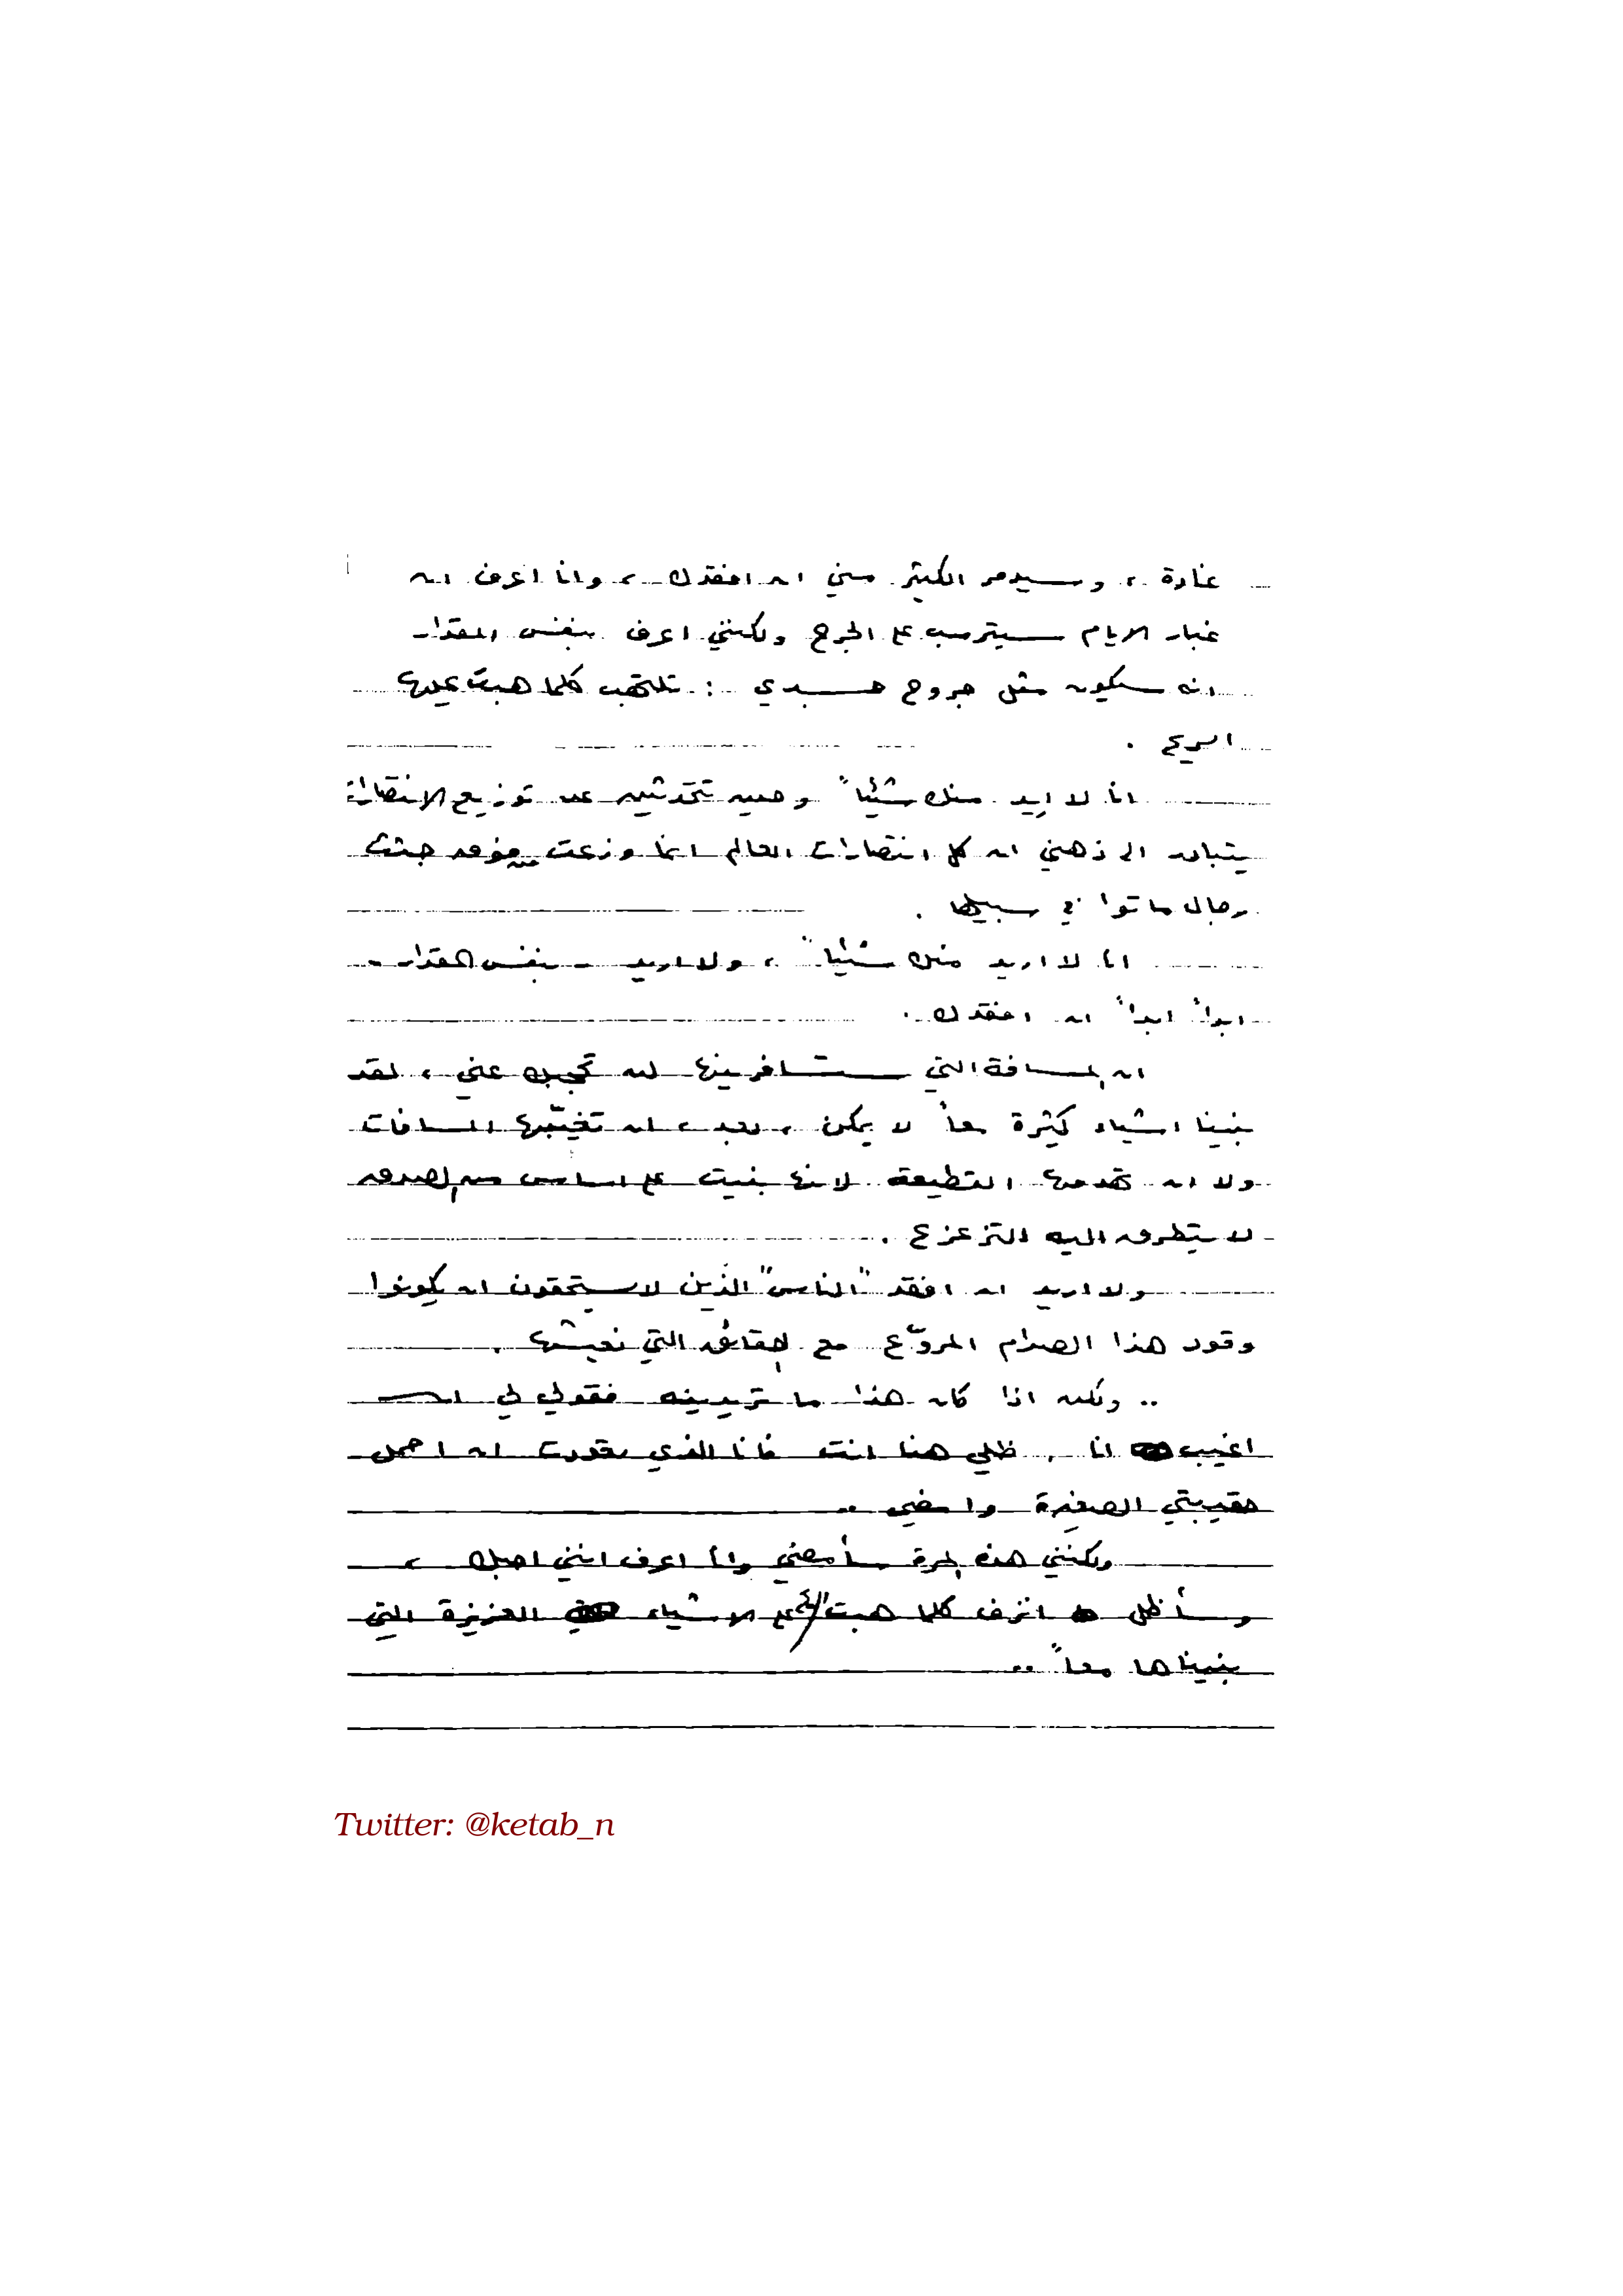 غادة ، وسيدمر الكثير مني ان افقدك ، وانا اعرف ان
غبار الايام سيترسب على الجرح ولكنني اعرف بنفس المقدار
انه سيكون مثل جروح جسدي : تلتهب كلما هبت عليها
الريح .
انا لا اريد منك شيئاً وحين تتحدثين عن توزيع الانتصارات
يتبادر الى ذهني ان كل انتصارات العالم انما وزعت من فوق جثث
رجال ماتوا في سبيلها .
انا لا اريد منك شيئاً ، ولا اريد - بنفس المقدار -
ابداً ابداً ان افقدك .
ان المسافة التي ستسافرينها لن تحجبك عني ، لقد
بنينا اشياء كثيرة معاً لا يمكن ، بعد ، ان تغيّبها المسافات
ولا ان تهدمها القطيعة لانها بنيت على اساس من الصدق
لا يتطرق اليه التزعزع .
ولا اريد ان افقد "الناس" الذين لا يستحقون ان يكونوا
وقود هذا الصدام المروّع مع الحقائق التي نعيشها .
.. ولكن اذا كان هذا ما تريدينه فقولي لي ان
اغيب انا . ظلي هنا انت فانا الذي تعودت ان احمل
حقيبتي الصغيرة وامضي ..
ولكنني هذه المرة سأمضي وانا اعرف انني احبك ،
وسأظل انزف كلما هبت الريح على الاشياء العزيزة التي
بنيناها معاً ..
Twitter: @ketab_n